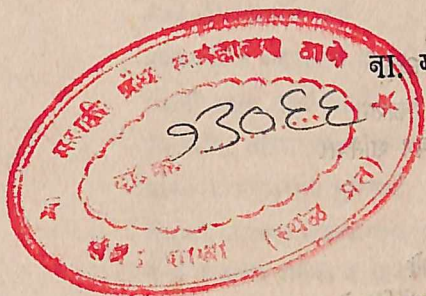 ना.
मराठी ग्रंथ संग्रहालय ठाणे
दा. क्र. १३०६६
शाखा (स्थळ प्रत)